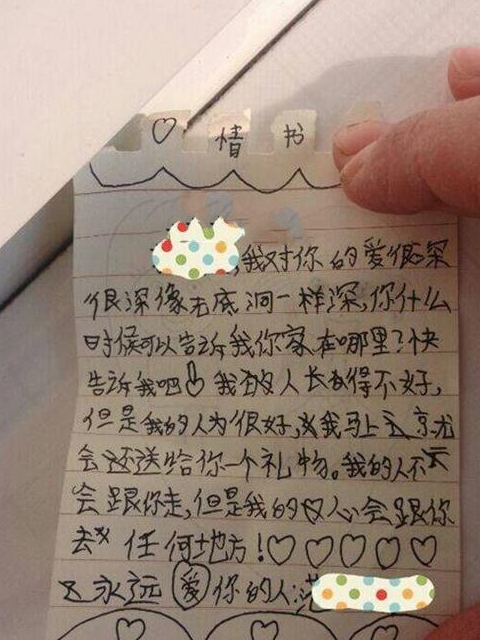 ♡ 情 书
,我对你的爱很深
很深像无底洞一样深,你什么
时候可以告诉我你家在哪里?快
告诉我吧 我的人长得不好,
但是我的人为很好,我马上
会还送给你一个礼物。我的人不
会跟你走,但是我的心会跟你
去 任何地方!♡♡♡♡♡
永远爱你的人: